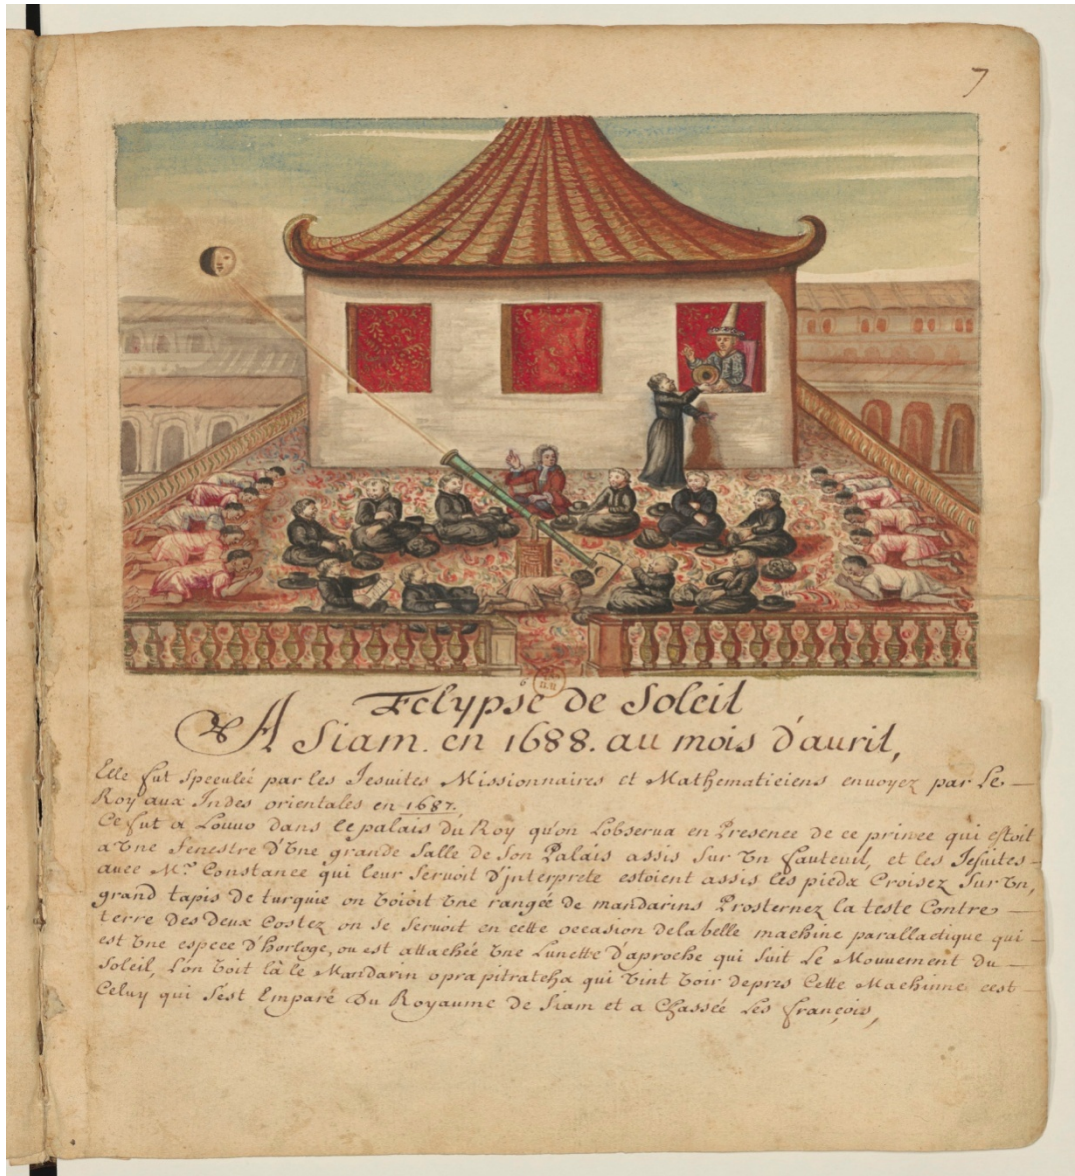 7
Eclypse de Soleil
A Siam. en 1688. au mois d'auril,
Elle fut speculée par les Jesuites Missionnaires et Mathematiciens envoyez par Le
Roy aux Indes orientales en 1687.
Ce fut a Louuo dans le palais du Roy qu'on Lobserua en Presence de ce prince qui estoit
a Vne fenestre d'Vne grande Salle de Son Palais assis Sur Vn fauteuil, et les Jesuites
auec Mr. Constance qui leur Seruoit D'jnterprete estoient assis les pieds Croisez Sur Vn,
grand tapis de turquie on Voioit Vne rangée de mandarins Prosternez la teste Contre
terre Des Deux Costez on se Seruoit en cette occasion dela belle machine parallactique qui
est Vne espece D'horloge, ou est attachée Vne Lunette D'aproche qui suit Le Mouuement du
Soleil, L'on Voit là le Mandarin oprapitratcha qui Vint Voir depres Cette Machinne cest
Celuy qui s'est Emparé Du Royaume de Siam et a Chassée Les françois,